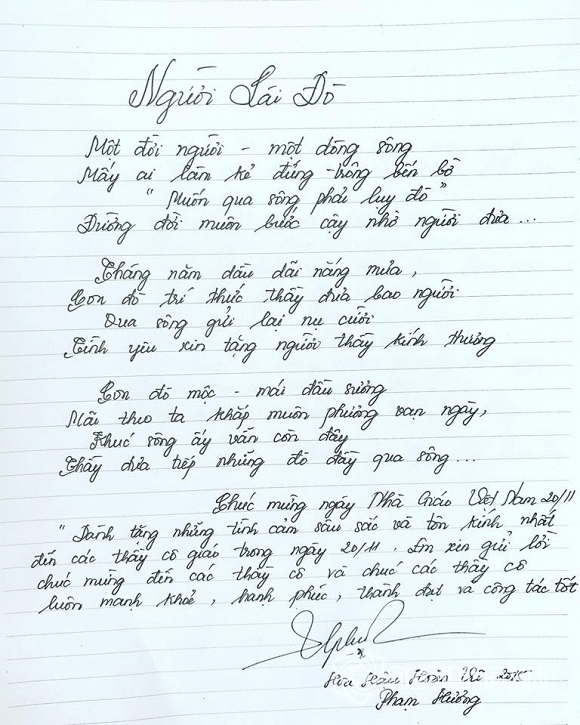 Người Lái Đò
Một đời người - một dòng sông
Mấy ai làm kẻ đứng trông bến bờ
"Muốn qua sông phải luỵ đò"
Đường đời muôn bước cậy nhờ người đưa ...
Tháng năm dầu dãi nắng mưa,
Con đò trí thức thầy đưa bao người
Qua sông gửi lại nụ cười
Tình yêu xin tặng người thầy kính thương
Con đò mộc - mái đầu sương
Mãi theo ta khắp muôn phương vạn ngày,
Khúc sông ấy vẫn còn đây
Thầy đưa tiếp những đò đầy qua sông ...
Chúc mừng ngày Nhà Giáo Việt Nam 20/11
"Dành tặng những tình cảm sâu sắc và tôn kính nhất
đến các thầy cô giáo trong ngày 20/11. Em xin gửi lời
chúc mừng đến các thầy cô và chúc các thầy cô
luôn mạnh khoẻ, hạnh phúc, thành đạt và công tác tốt
Hoa Hậu Hoàn Vũ 2015
Phạm Hương